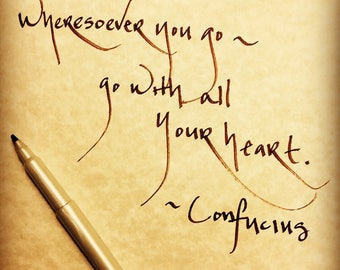 wheresoever you go ~
go with all
your heart.
~ Confucius